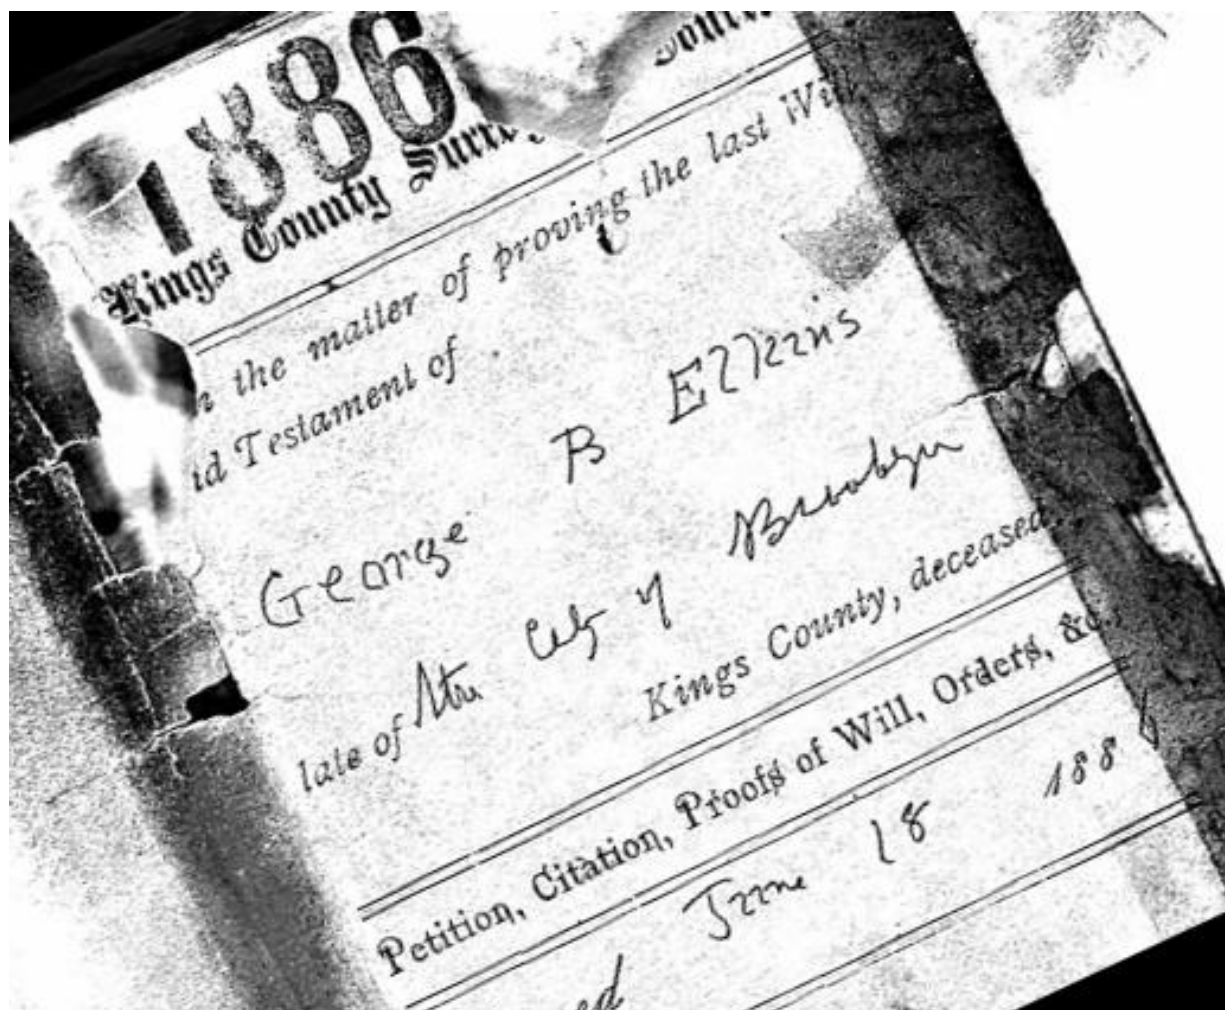 1886
Kings County Surro
n the matter of proving the last Wil
id Testament of
George B Elkins
late of the City of Brooklyn
Kings County, deceased.
Petition, Citation, Proofs of Will, Orders, &c.,
June 18 1886
ed